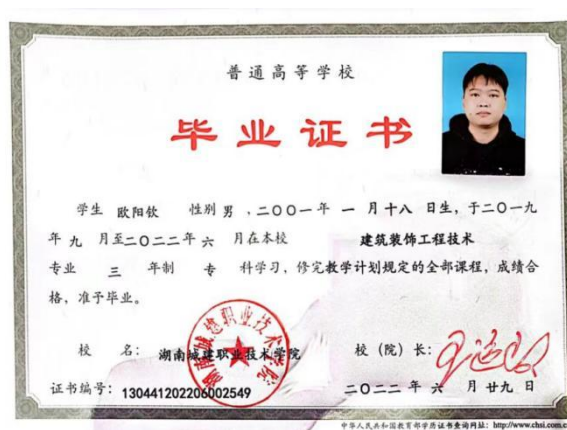 普通高等学校
毕业证书
学生 欧阳钦 性别 男 ，二〇〇一 年 一 月 十八 日生，于二〇一九
年 九 月至二〇二二年 六 月在本校 建筑装饰工程技术
专业 三 年制 专 科学习，修完教学计划规定的全部课程，成绩合
格，准予毕业。
校 名： 湖南城建职业技术学院 校（院）长：
湖南城建职业技术学院
证书编号：130441202206002549 二〇二二 年 六 月 廿九 日
中华人民共和国教育部学历证书查询网址：http://www.chsi.com.c